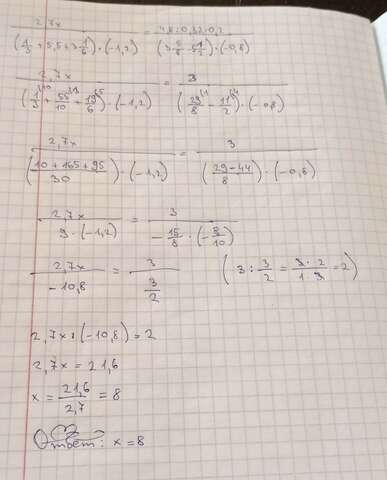 2,7x / ((1/3 + 5,5 + 3 1/6) · (-1,2)) = 4,8 : 0,32 · 0,2 / ((3 5/8 - 5 1/2) · (-0,8))
2,7x / ((1/3 + 55/10 + 19/6) · (-1,2)) = 3 / ((29/8 - 11/2) · (-0,8))
2,7x / (((10 + 165 + 95)/30) · (-1,2)) = 3 / (((29-44)/8) · (-0,8))
2,7x / (9 · (-1,2)) = 3 / (-15/8 · (-8/10))
2,7x / -10,8 = 3 / (3/2) (3 : 3/2 = 3 · 2 / 1 · 3 = 2)
2,7x : (-10,8) = 2
2,7x = 21,6
x = 21,6/2,7 = 8
Ответ: x = 8